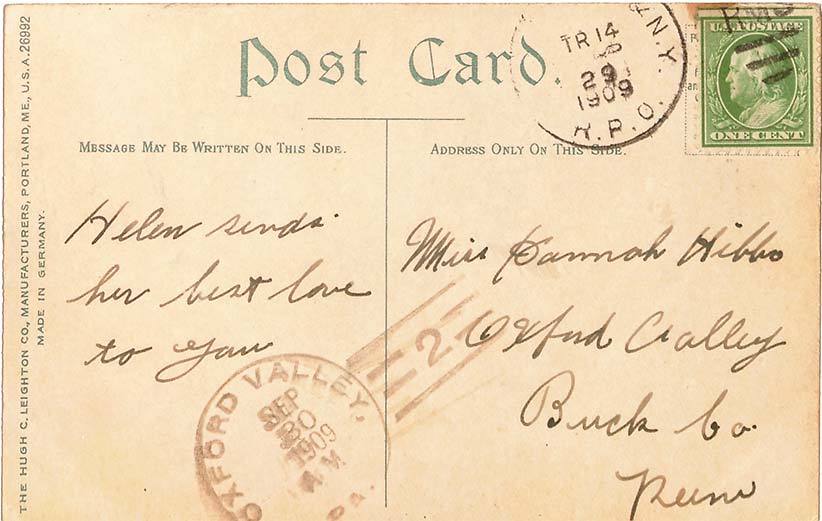 THE HUGH C. LEIGHTON CO., MANUFACTURERS, PORTLAND, ME., U.S.A. 26992
MADE IN GERMANY.
Post Card.
MESSAGE MAY BE WRITTEN ON THIS SIDE.
ADDRESS ONLY ON THIS SIDE.
& N.Y.
TR 14
29
1909
R.P.O.
RMS
U.S. POSTAGE
ONE CENT
Helen sends
her best love
to you
Miss Hannah Hibbs
Oxford Valley
Buck Co.
Penn
2
OXFORD VALLEY,
SEP
30
1909
PA.